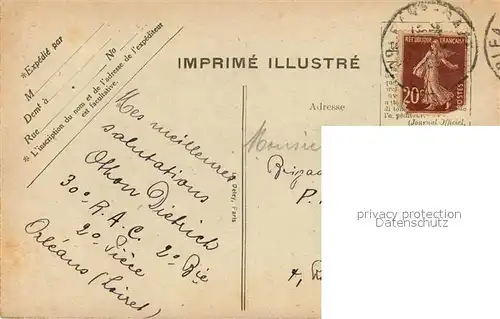 *Expédié par
M No
Demt à
Rue
* L'inscription du nom et de l'adresse de l'expéditeur
est facultative.
Mes meilleures
salutations
Othon Dietrich
30e R.A.C. 2e Bie
2e Pièce
Orléans (Loiret)
Paris
IMPRIMÉ ILLUSTRÉ
Adresse
RÉPUBLIQUE FRANÇAISE
20c
POSTES
(Journal Officiel,
Monsie
Briga
P.
4,
privacy protection
Datenschutz